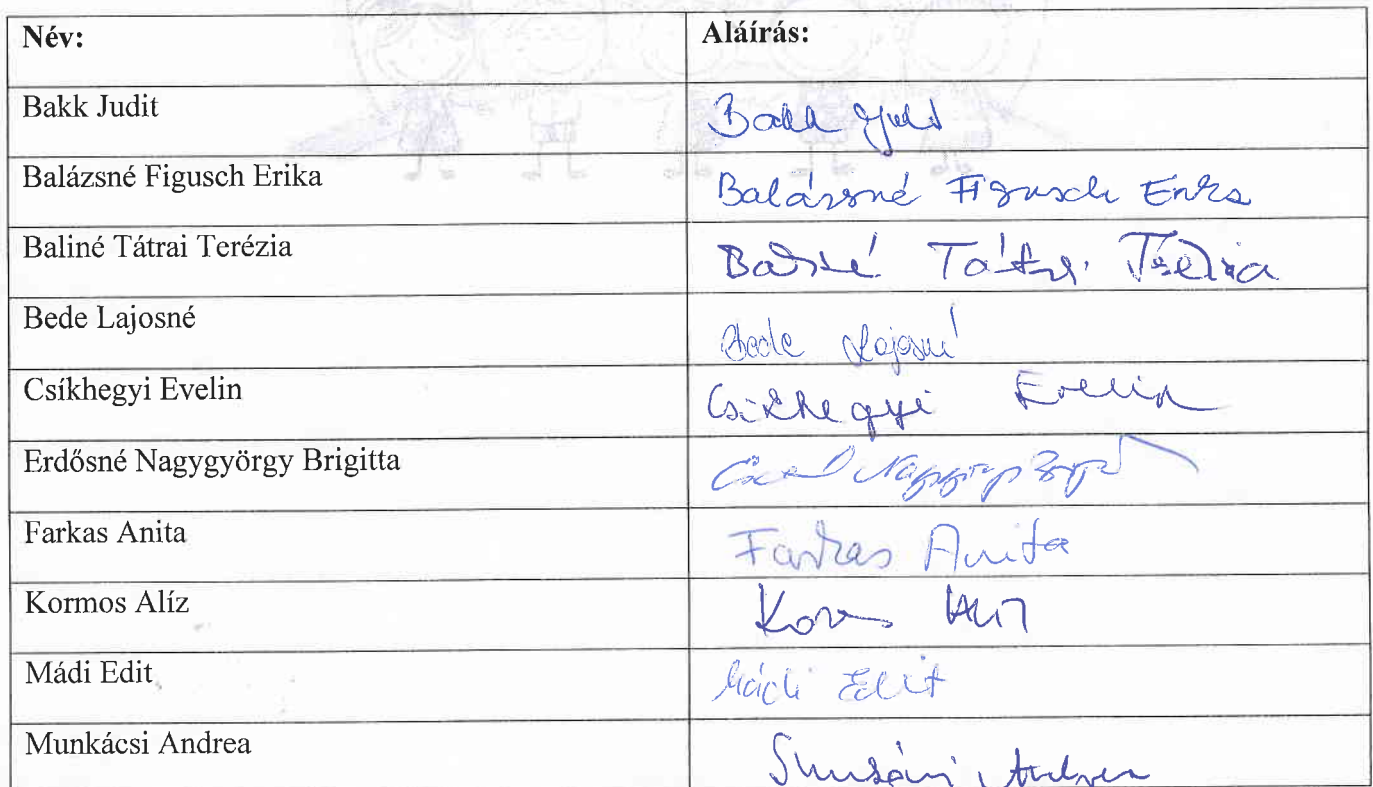 Név: Aláírás:
Bakk Judit Bakk Judit
Balázsné Figusch Erika Balázsné Figusch Erika
Baliné Tátrai Terézia Baliné Tátrai Terézia
Bede Lajosné Bede Lajosné
Csíkhegyi Evelin Csíkhegyi Evelin
Erdősné Nagygyörgy Brigitta
Farkas Anita Farkas Anita
Kormos Alíz Kormos Alíz
Mádi Edit Mádi Edit
Munkácsi Andrea Munkácsi Andrea